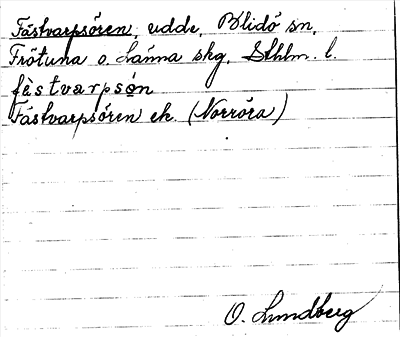 Fästvarpsören, udde, Blidö sn,
Frötuna o. Länna skg, Sthlm. l.
fästvarpsön
Fästvarpsören ek. (Norröra)
O. Lundberg